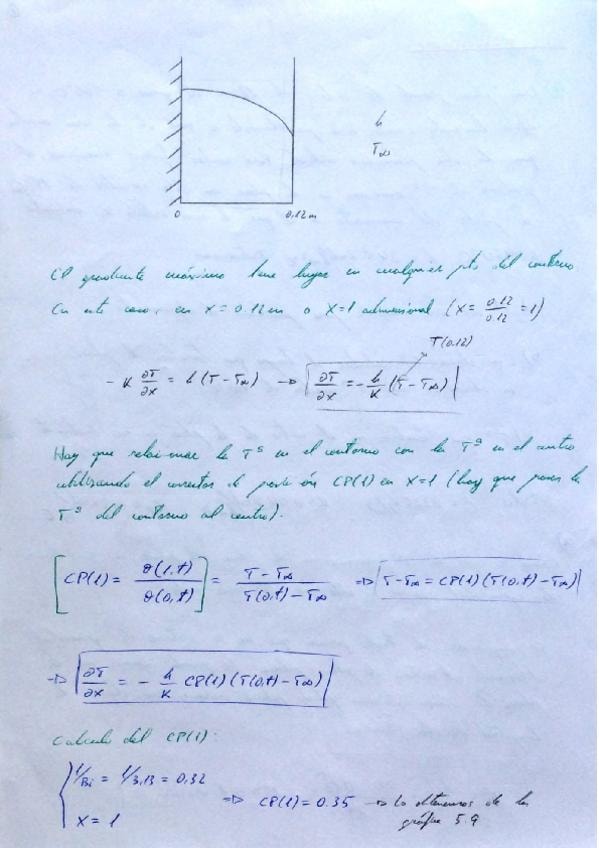 h
T∞
0
0,12 m
El gradiente máximo tiene lugar en cualquier pto del contorno
En este caso, en x = 0.12 m o X=1 adimensional (X = 0.12/0.12 = 1)
T(0.12)
-K ∂T/∂x = h (T - T∞) → ∂T/∂x = - h/K (T - T∞)
Hay que relacionar la Tª en el contorno con la Tª en el centro
utilizando el corrector de posición CP(1) en X=1 (hay que pasar la
Tª del contorno al centro).
[CP(1) = θ(1,t)/θ(0,t)] = T - T∞/T(0,t) - T∞ ⇒ T - T∞ = CP(1) (T(0,t) - T∞)
⇒ ∂T/∂x = - h/K CP(1) (T(0,t) - T∞)
Calculo del CP(1):
1/Bi = 1/3,13 = 0,32
X = 1
⇒ CP(1) = 0.35 → Lo obtenemos de la
gráfica 5.9